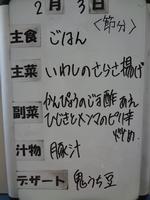 2月3日
<節分>
主食 ごはん
主菜 いわしのさらさ揚げ
副菜 かんぴょうのごま酢あえ
ひじきとメンマのピリ辛炒め
汁物 豚汁
デザート 鬼うち豆